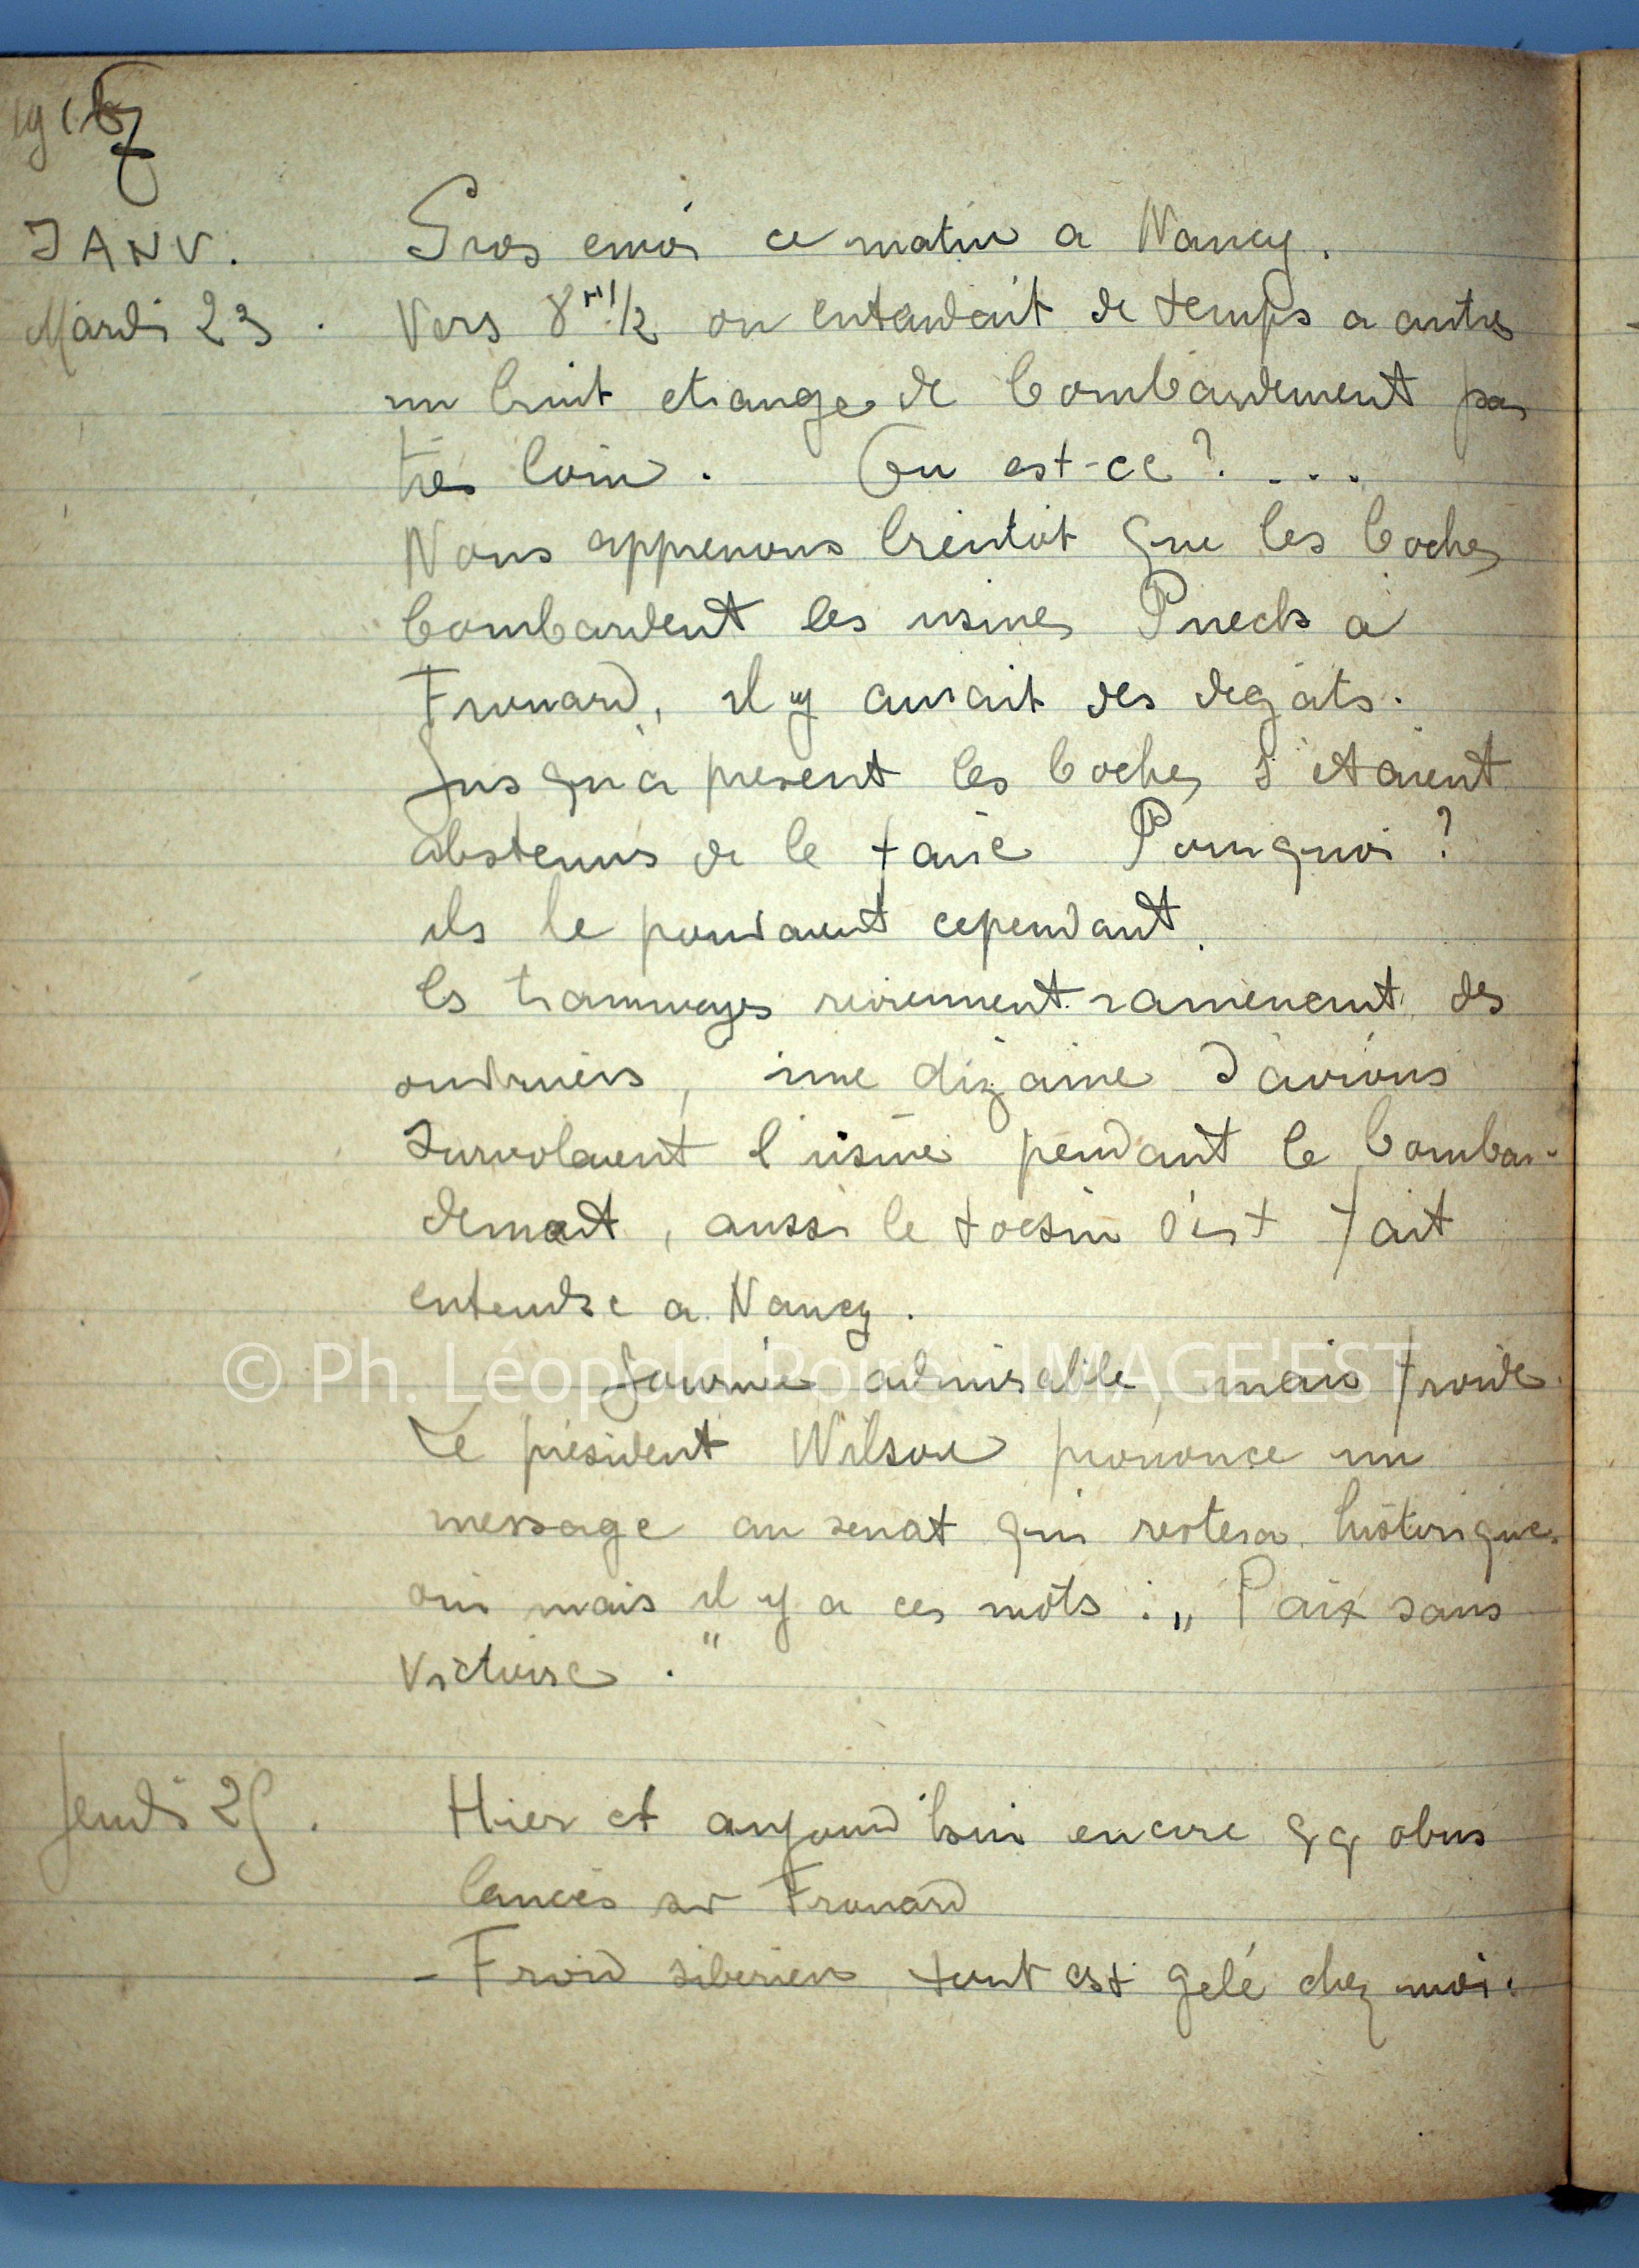 1917
JANV. Gros emoi ce matin a Nancy.
Mardi 23. Vers 8H 1/2 on entendait de temps a autre
un bruit etrange de bombardement pas
très loin. Ou est-ce ? ...
Nous apprenons bientot que les boches
bombardent les usines Puech a
Frouard, il y aurait des degats.
Jusqu'a present les boches s'etaient
abstenus de le faire Pourquoi ?
ils le pouvaient cependant.
les tramways reviennent ramenant des
ouvriers, une dizaine d'avions
survolaient l'usine pendant le bombar-
dement, aussi le tocsin s'est fait
entendre a Nancy.
© Ph. Léopold Poiré - IMAGE'EST
Journée admirable mais froide.
Le président Wilson prononce un
message au senat qui restera historique
oui mais il y a ces mots : „ Paix sans
victoire . "
Jeudi 25. Hier et aujourd'hui encore qq obus
lancés sur Frouard
- Froid siberien tout est gelé chez moi.